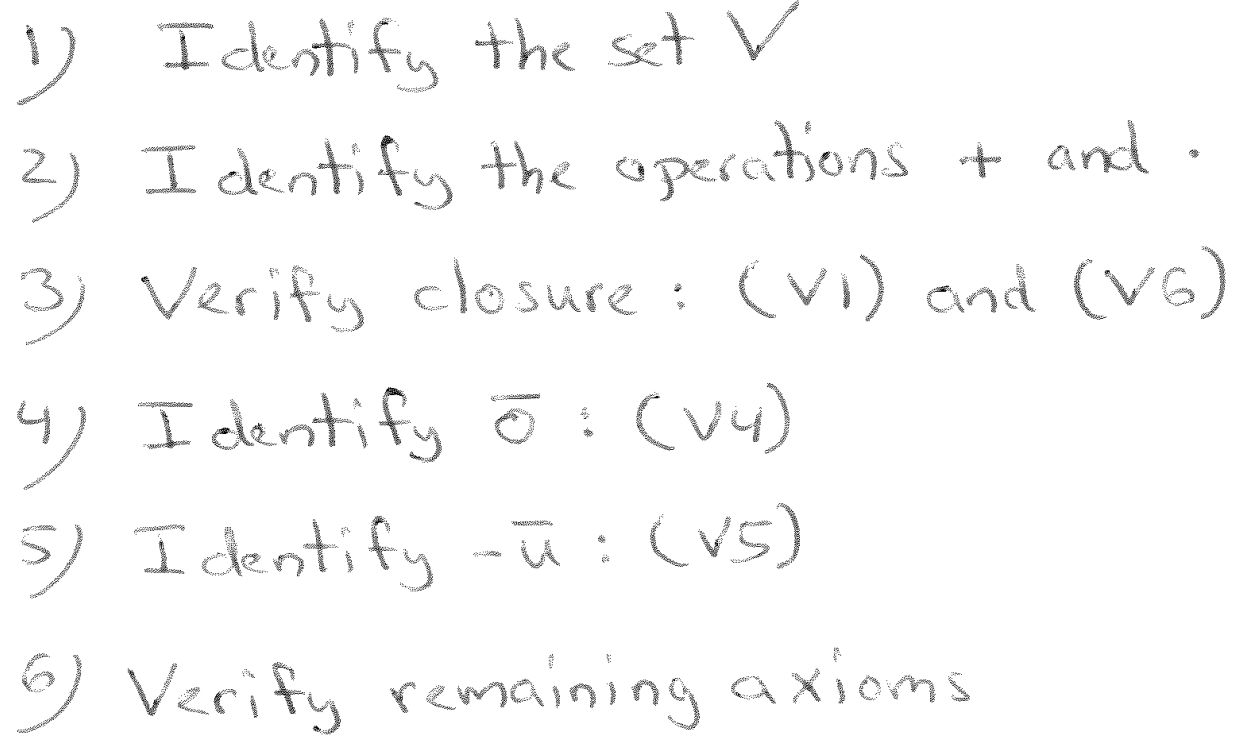 1) Identify the set V
2) Identify the operations + and ·
3) Verify closure : (V1) and (V6)
4) Identify o̅ : (V4)
5) Identify -u̅ : (V5)
6) Verify remaining axioms